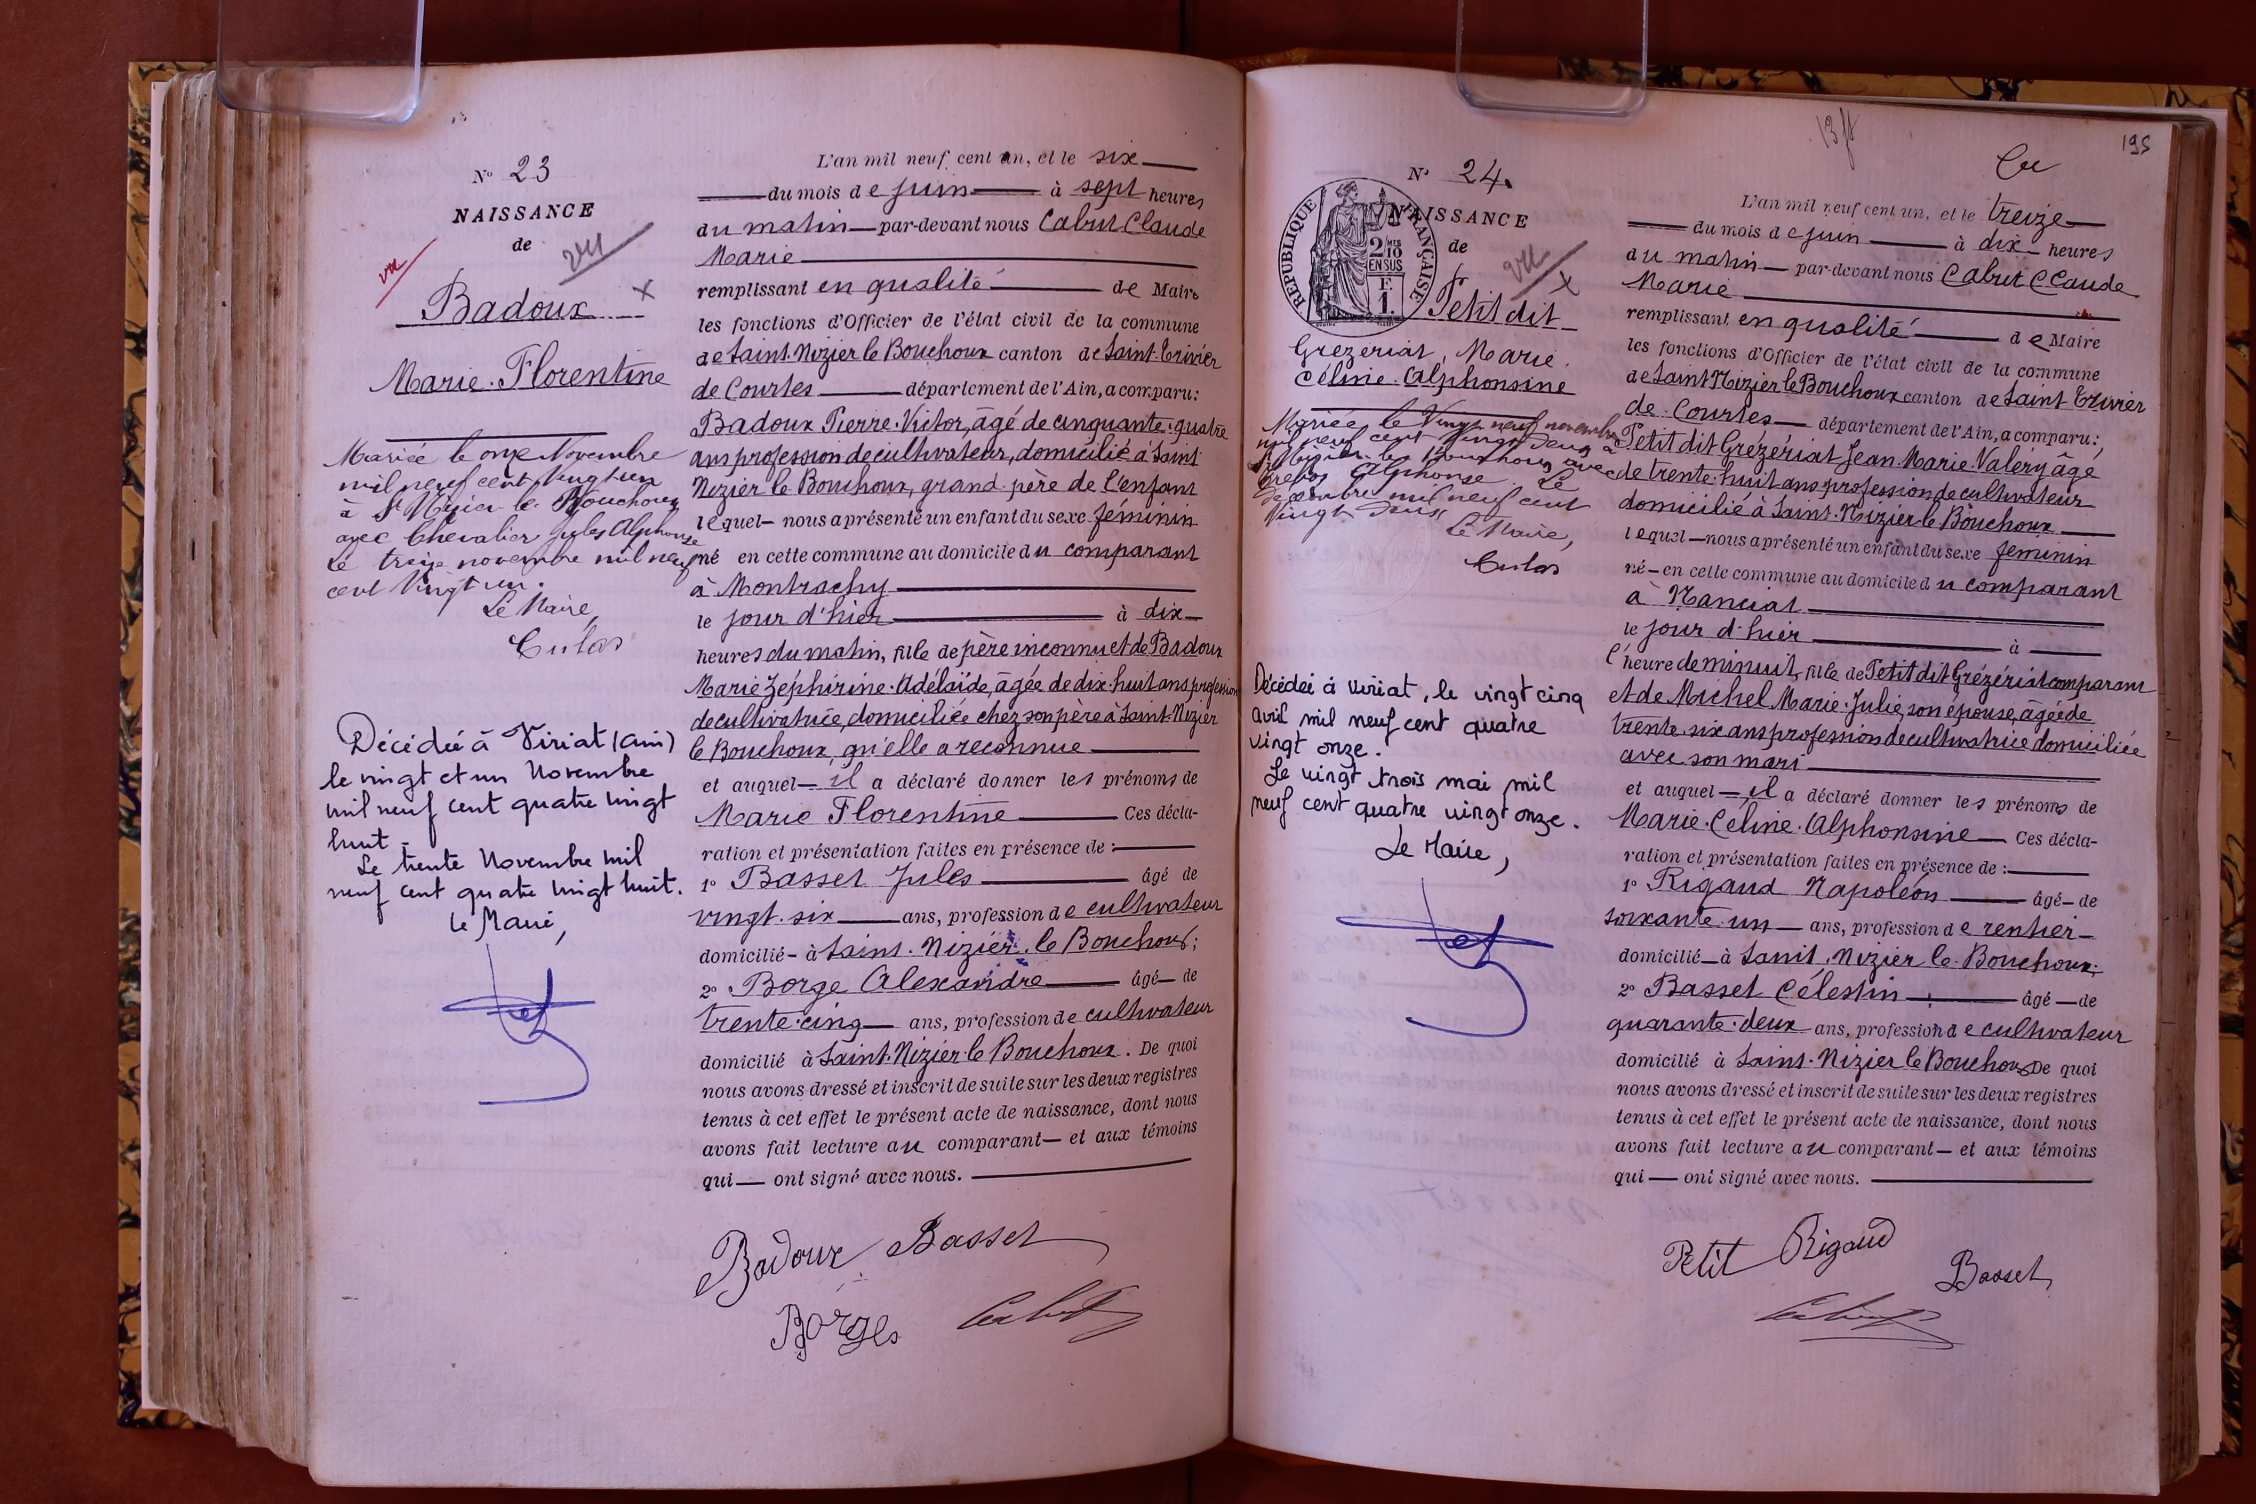 N° 23
NAISSANCE
de
vu
vu
Badoux
Marie Florentine
Mariée le onze Novembre
mil neuf cent vingt un
à St Nizier le Bouchoux
avec Chevalier Jules Alphonse
Le treize novembre mil neuf
cent vingt un.
Le Maire,
Culas
Décédée à Viriat (Ain)
le vingt et un Novembre
mil neuf cent quatre vingt
huit.
Le trente Novembre mil
neuf cent quatre vingt huit.
Le Maire,
L'an mil neuf cent un, et le six
du mois de juin à sept heures
du matin par-devant nous Cabut Claude
Marie
remplissant en qualité de Maire
les fonctions d'Officier de l'état civil de la commune
de Saint-Nizier le Bouchoux canton de Saint-Trivier
de Courtes département de l'Ain, a comparu:
Badoux Pierre-Victor, âgé de cinquante-quatre
ans profession de cultivateur, domicilié à Saint
Nizier le Bouchoux, grand-père de l'enfant
lequel nous a présenté un enfant du sexe féminin
né en cette commune au domicile du comparant
à Montrachy
le jour d'hier à dix
heures du matin, fille de père inconnu et de Badoux
Marie Zéphirine-Adélaïde, âgée de dix-huit ans profession
de cultivatrice, domiciliée chez son père à Saint-Nizier
le Bouchoux, qu'elle a reconnue
et auquel il a déclaré donner les prénoms de
Marie Florentine Ces décla-
ration et présentation faites en présence de :
1° Basset Jules âgé de
vingt-six ans, profession de cultivateur
domicilié à Saint-Nizier-le Bouchoux;
2° Borge Alexandre âgé de
trente-cinq ans, profession de cultivateur
domicilié à Saint-Nizier-le Bouchoux. De quoi
nous avons dressé et inscrit de suite sur les deux registres
tenus à cet effet le présent acte de naissance, dont nous
avons fait lecture au comparant et aux témoins
qui ont signé avec nous.
Badoux Basset
Borges Cabut
13 ft
195
N° 24.
RÉPUBLIQUE FRANÇAISE
2/10 EN SUS
F. 1.
NAISSANCE
de
vu
Petit dit
Grézériat, Marie
Céline-Alphonsine
Mariée le vingt neuf novembre
mil neuf cent vingt deux à
St Nizier le Bouchoux avec
Alphonse. Le
décembre mil neuf cent
vingt deux
Le Maire,
Culas
Décédée à Viriat, le vingt cinq
avril mil neuf cent quatre
vingt onze.
Le vingt trois mai mil
neuf cent quatre vingt onze.
Le Maire,
L'an mil neuf cent un, et le treize
du mois de juin à dix heures
du matin par-devant nous Cabut Claude
Marie
remplissant en qualité de Maire
les fonctions d'Officier de l'état civil de la commune
de Saint-Nizier le Bouchoux canton de Saint-Trivier
de Courtes département de l'Ain, a comparu;
Petit dit Grézériat Jean-Marie-Valéry âgé
de trente-huit ans profession de cultivateur
domicilié à Saint-Nizier le Bouchoux
lequel nous a présenté un enfant du sexe féminin
né en cette commune au domicile du comparant
à Manciat
le jour d'hier à
l'heure de minuit, fille de Petit dit Grézériat comparant
et de Michel Marie-Julie, son épouse, âgée de
trente-six ans profession de cultivatrice domiciliée
avec son mari
et auquel il a déclaré donner les prénoms de
Marie-Céline-Alphonsine Ces décla-
ration et présentation faites en présence de :
1° Rigaud Napoléon âgé de
soixante-un ans, profession de rentier
domicilié à Saint-Nizier le Bouchoux;
2° Basset Célestin âgé de
quarante-deux ans, profession de cultivateur
domicilié à Saint-Nizier le Bouchoux De quoi
nous avons dressé et inscrit de suite sur les deux registres
tenus à cet effet le présent acte de naissance, dont nous
avons fait lecture au comparant et aux témoins
qui ont signé avec nous.
Petit Rigaud
Basset
Cabut